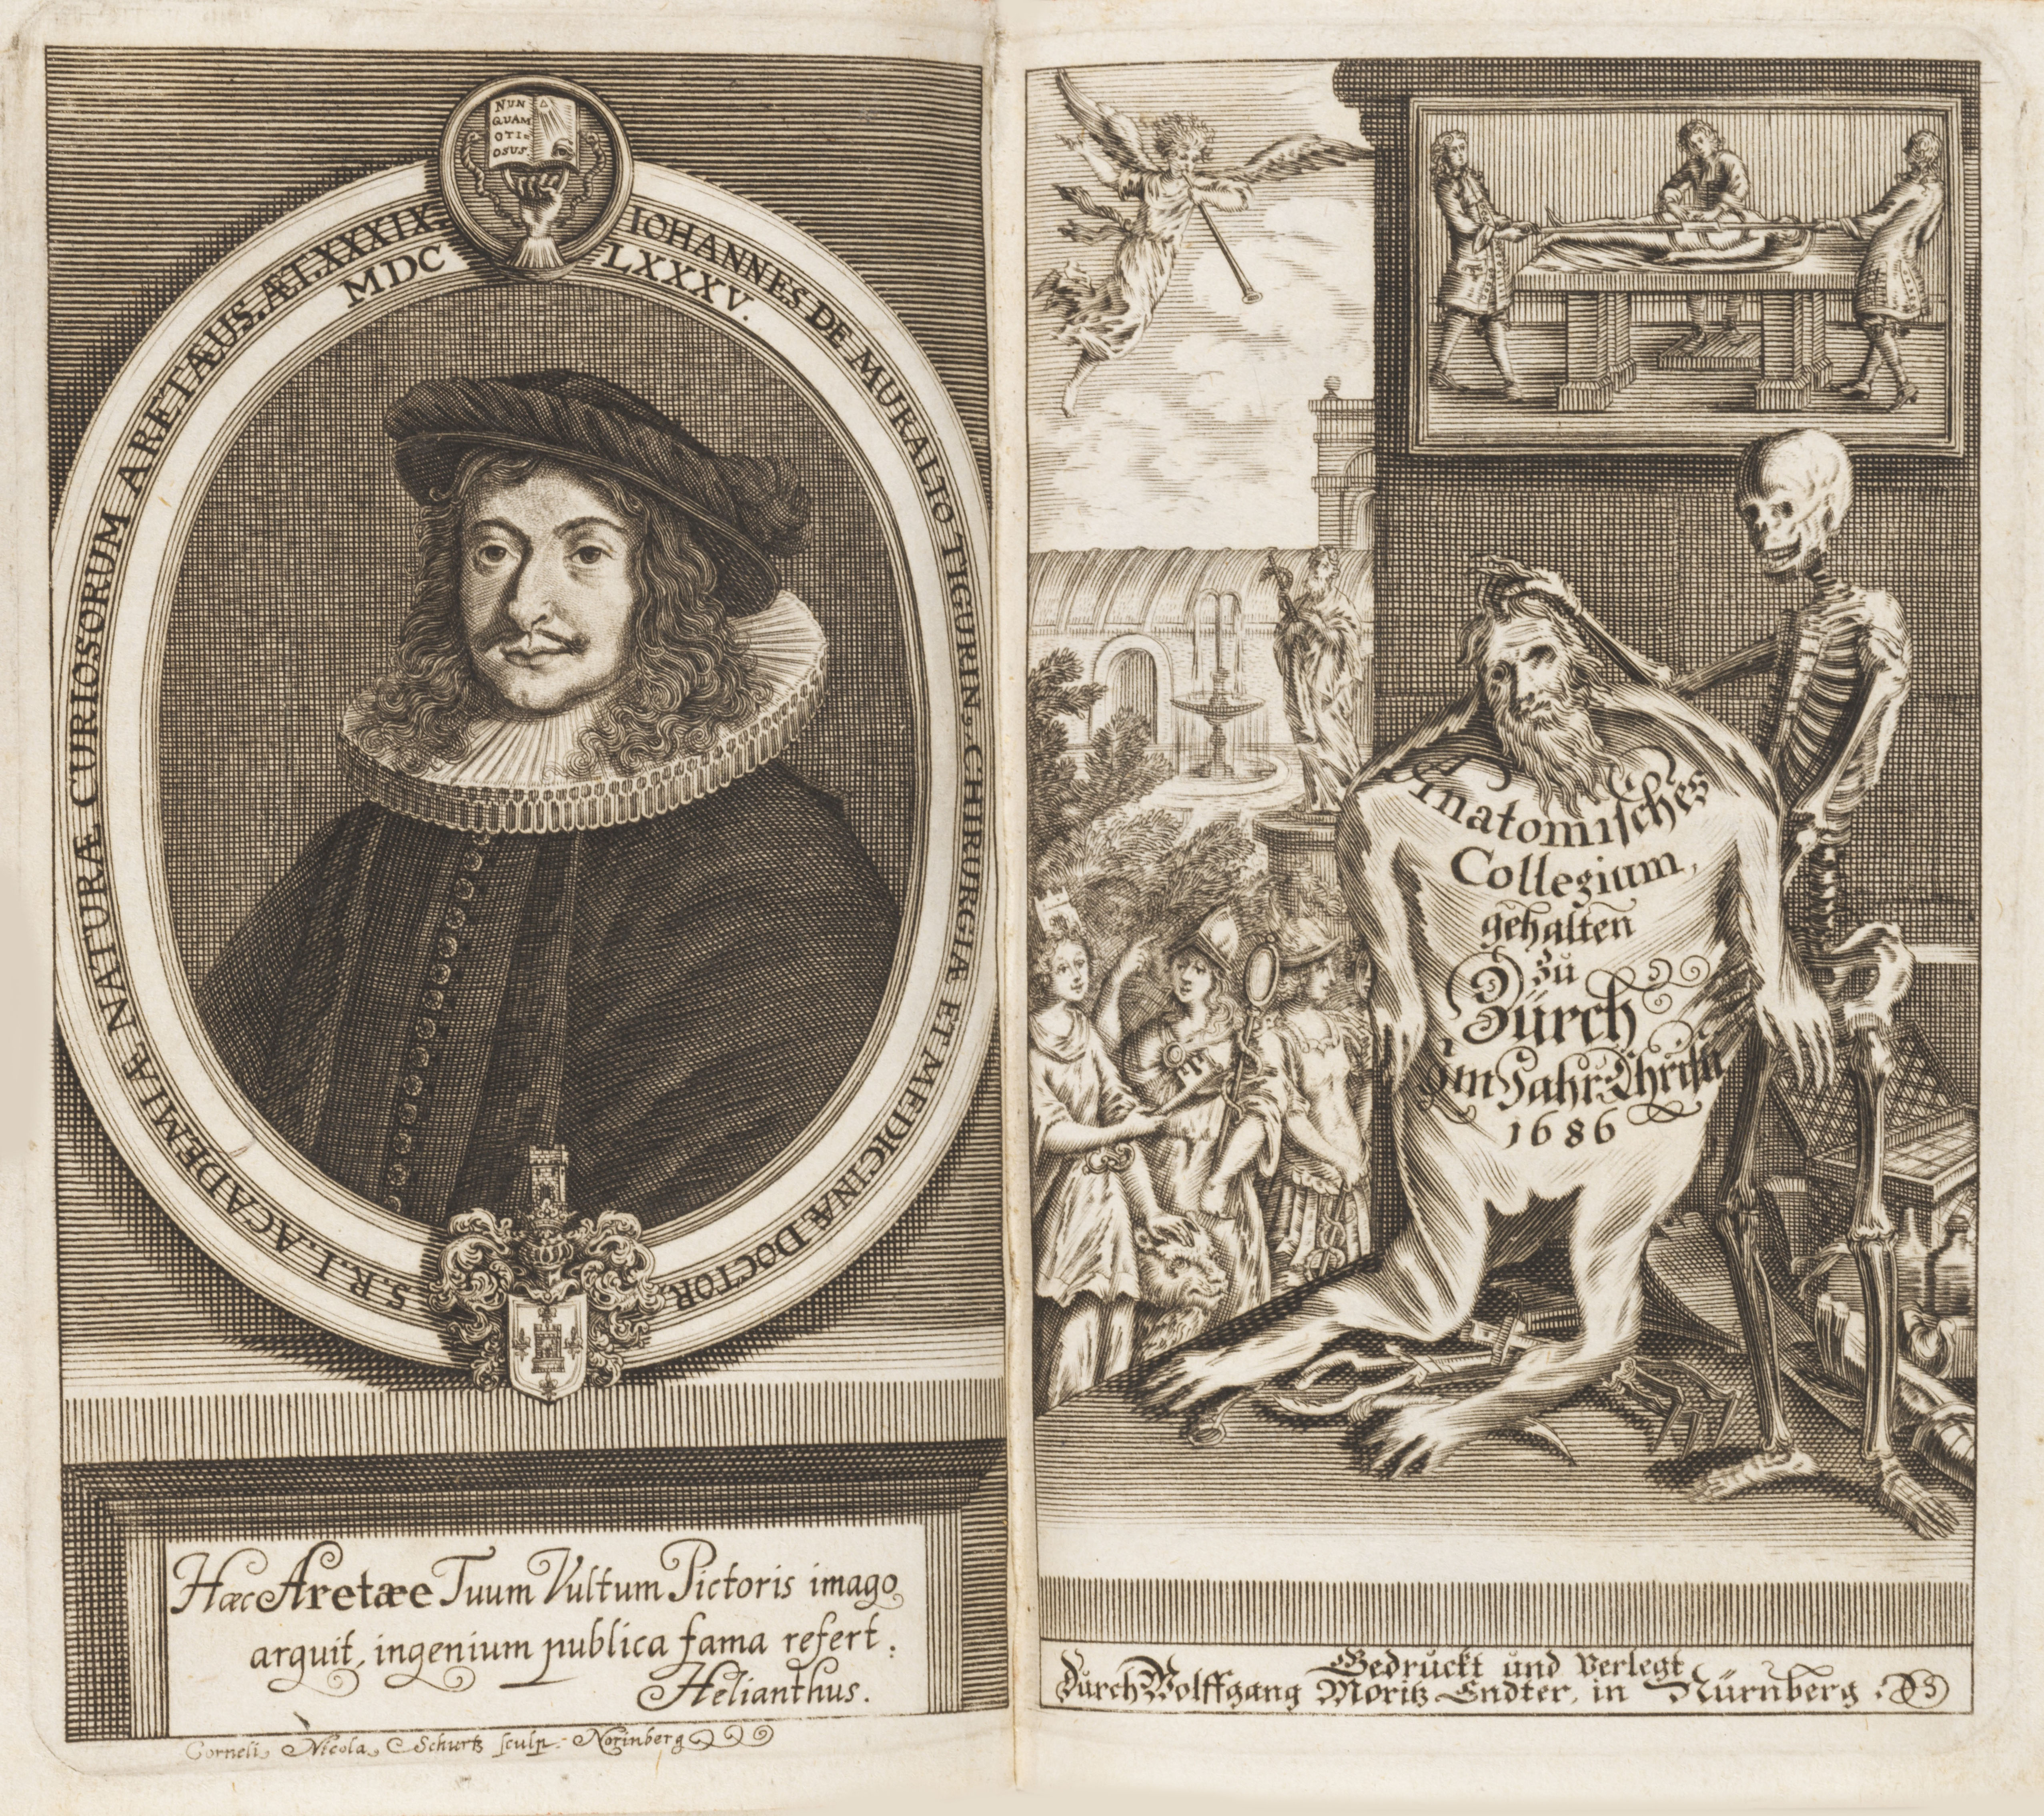 NUN
QUAM
OTI=
OSUS.
IOHANNES DE MURALTO TIGURIN, CHIRURGIÆ ET MEDICINÆ DOCTOR,
S. R. I. ACADEMIÆ NATURÆ CURIOSORUM ARETÆUS. ÆT. XXXIX.
MDC LXXXV.
Hæc Aretæe Tuum Vultum Pictoris imago
arguit, ingenium publica fama refert:
Helianthus.
Corneli, Nicola, Schurtz sculp: Norinberg
Anatomisches
Collegium,
gehalten
zu
Zürch
Im Jahr Christi
1686
Gedruckt und Verlegt
Durch Wolffgang Moritz Endter, in Nürnberg.